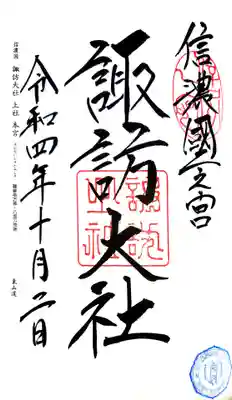 信濃國一之宮
諏訪大社
令和四年十月二日
信濃國 諏訪大社 上社 本宮
東山道